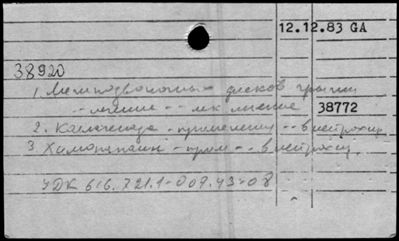 12.12.83 GA
38920
1. Межпозвоночных дисков грыжи
- лечение -- лек. лечение 38772
2. Коллагеназа - применение -- в нейрохир.
3. Химопапаин - прим. -- в нейрохир.
УДК 616.721.1-007.43-08